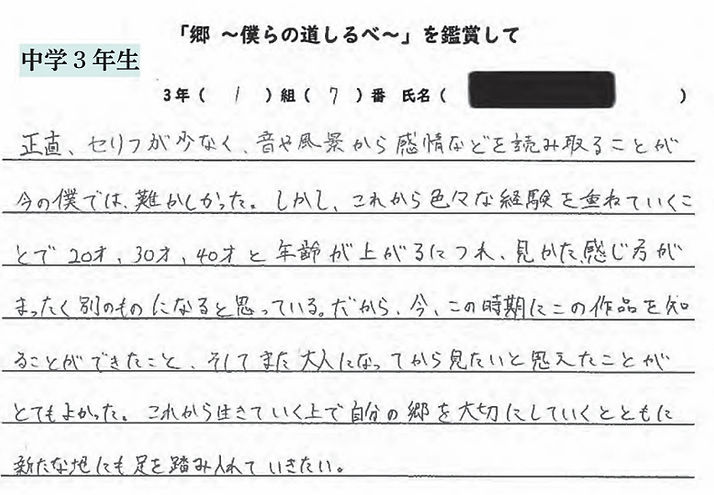 「郷 ～僕らの道しるべ～」を鑑賞して
中学３年生
3年（ 1 ）組（ 7 ）番 氏名（ ）
正直、セリフが少なく、音や風景から感情などを読み取ることが
今の僕では、難かしかった。しかし、これから色々な経験を重ねていくこ
とで20才,30才,40才と年齢が上がるにつれ、見かた、感じ方が
まったく別のものになると思っている。だから、今、この時期にこの作品を知
ることができたこと、そしてまた大人になってから見たいと思えたことが
とてもよかった。これから生きていく上で自分の郷を大切にしていくとともに
新たな地にも足を踏み入れていきたい。